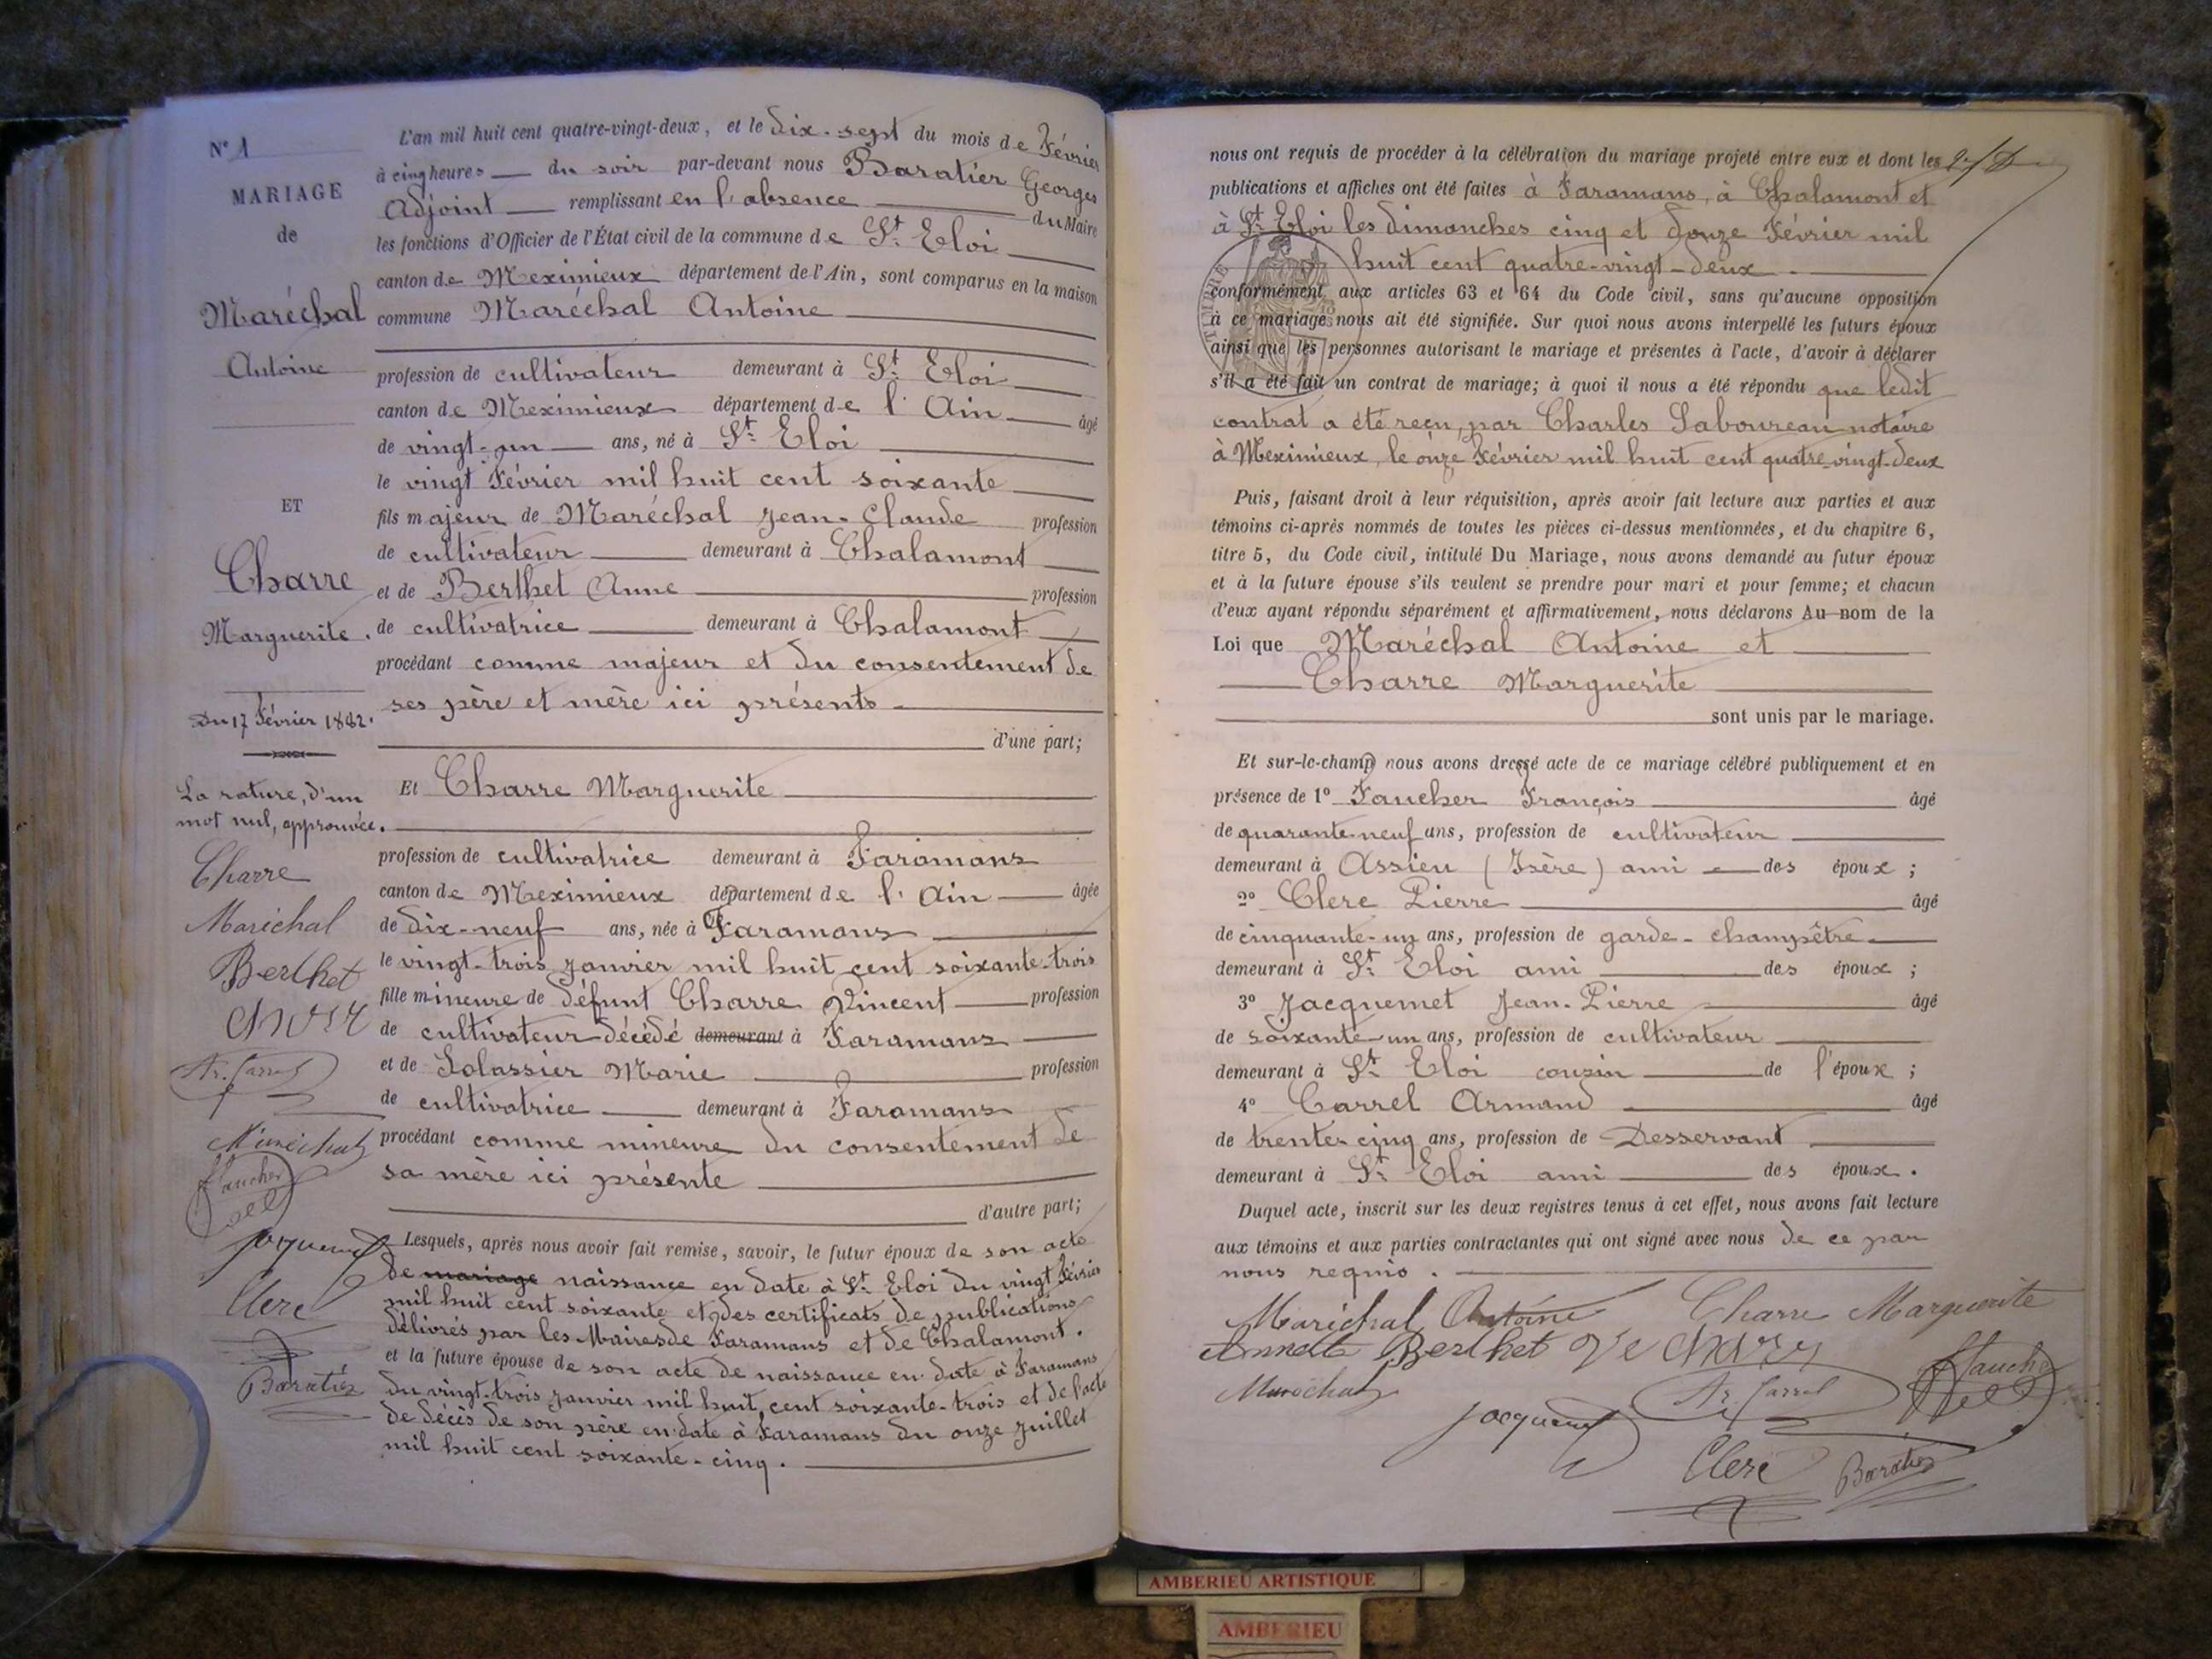 N° 1
MARIAGE
de
Maréchal
Antoine
ET
Charre
Marguerite.
Du 17 Février 1882.
La rature, d'un
mot nul, approuvée.
Charre
Maréchal
Berthet
Ar. Carrel
Maréchal
Faucher
Jacquemet
Clerc
Baratier
L'an mil huit cent quatre-vingt-deux, et le dix-sept du mois de Février
à cinq heures du soir par-devant nous Baratier Georges
Adjoint remplissant en l'absence du Maire
les fonctions d'Officier de l'État civil de la commune de St. Eloi
canton de Meximieux département de l'Ain, sont comparus en la maison
commune Maréchal Antoine
profession de cultivateur demeurant à St. Eloi
canton de Meximieux département de l'Ain âgé
de vingt-un ans, né à St. Eloi
le vingt Février mil huit cent soixante
fils majeur de Maréchal Jean-Claude profession
de cultivateur demeurant à Chalamont
et de Berthet Anne profession
de cultivatrice demeurant à Chalamont
procédant comme majeur et du consentement de
ses père et mère ici présents
d'une part;
Et Charre Marguerite
profession de cultivatrice demeurant à Faramans
canton de Meximieux département de l'Ain âgée
de dix-neuf ans, née à Faramans
le vingt-trois Janvier mil huit cent soixante-trois
fille mineure de défunt Charre Vincent profession
de cultivateur décédé demeurant à Faramans
et de Solassier Marie profession
de cultivatrice demeurant à Faramans
procédant comme mineure du consentement de
sa mère ici présente
d'autre part;
Lesquels, après nous avoir fait remise, savoir, le futur époux de son acte
de mariage naissance en date à St. Eloi du vingt Février
mil huit cent soixante et des certificats de publications
délivrés par les Maires de Faramans et de Chalamont.
et la future épouse de son acte de naissance en date à Faramans
du vingt-trois Janvier mil huit cent soixante-trois et de l'acte
de décès de son père en date à Faramans du onze Juillet
mil huit cent soixante-cinq.
nous ont requis de procéder à la célébration du mariage projeté entre eux et dont les
publications et affiches ont été faites à Faramans, à Chalamont et
à St. Eloi les dimanches cinq et douze Février mil
huit cent quatre-vingt-deux.
TIMBRE
conformément aux articles 63 et 64 du Code civil, sans qu'aucune opposition
à ce mariage nous ait été signifiée. Sur quoi nous avons interpellé les futurs époux
ainsi que les personnes autorisant le mariage et présentes à l'acte, d'avoir à déclarer
s'il a été fait un contrat de mariage; à quoi il nous a été répondu que ledit
contrat a été reçu, par Charles Laboureau notaire
à Meximieux, le onze Février mil huit cent quatre-vingt-deux
Puis, faisant droit à leur réquisition, après avoir fait lecture aux parties et aux
témoins ci-après nommés de toutes les pièces ci-dessus mentionnées, et du chapitre 6,
titre 5, du Code civil, intitulé Du Mariage, nous avons demandé au futur époux
et à la future épouse s'ils veulent se prendre pour mari et pour femme; et chacun
d'eux ayant répondu séparément et affirmativement, nous déclarons Au nom de la
Loi que Maréchal Antoine et
Charre Marguerite
sont unis par le mariage.
Et sur-le-champ nous avons dressé acte de ce mariage célébré publiquement et en
présence de 1° Faucher François âgé
de quarante-neuf ans, profession de cultivateur
demeurant à Assieu (Isère) ami des époux;
2° Clerc Pierre âgé
de cinquante-un ans, profession de garde-champêtre
demeurant à St. Eloi ami des époux;
3° Jacquemet Jean-Pierre âgé
de soixante-un ans, profession de cultivateur
demeurant à St. Eloi cousin de l'époux;
4° Carrel Armand âgé
de trente-cinq ans, profession de Desservant
demeurant à St. Eloi ami des époux.
Duquel acte, inscrit sur les deux registres tenus à cet effet, nous avons fait lecture
aux témoins et aux parties contractantes qui ont signé avec nous de ce par
nous requis.
Maréchal Antoine Charre Marguerite
Berthet
Maréchal Ar. Carrel Faucher
Jacquemet
Clerc Baratier
AMBERIEU ARTISTIQUE
AMBERIEU